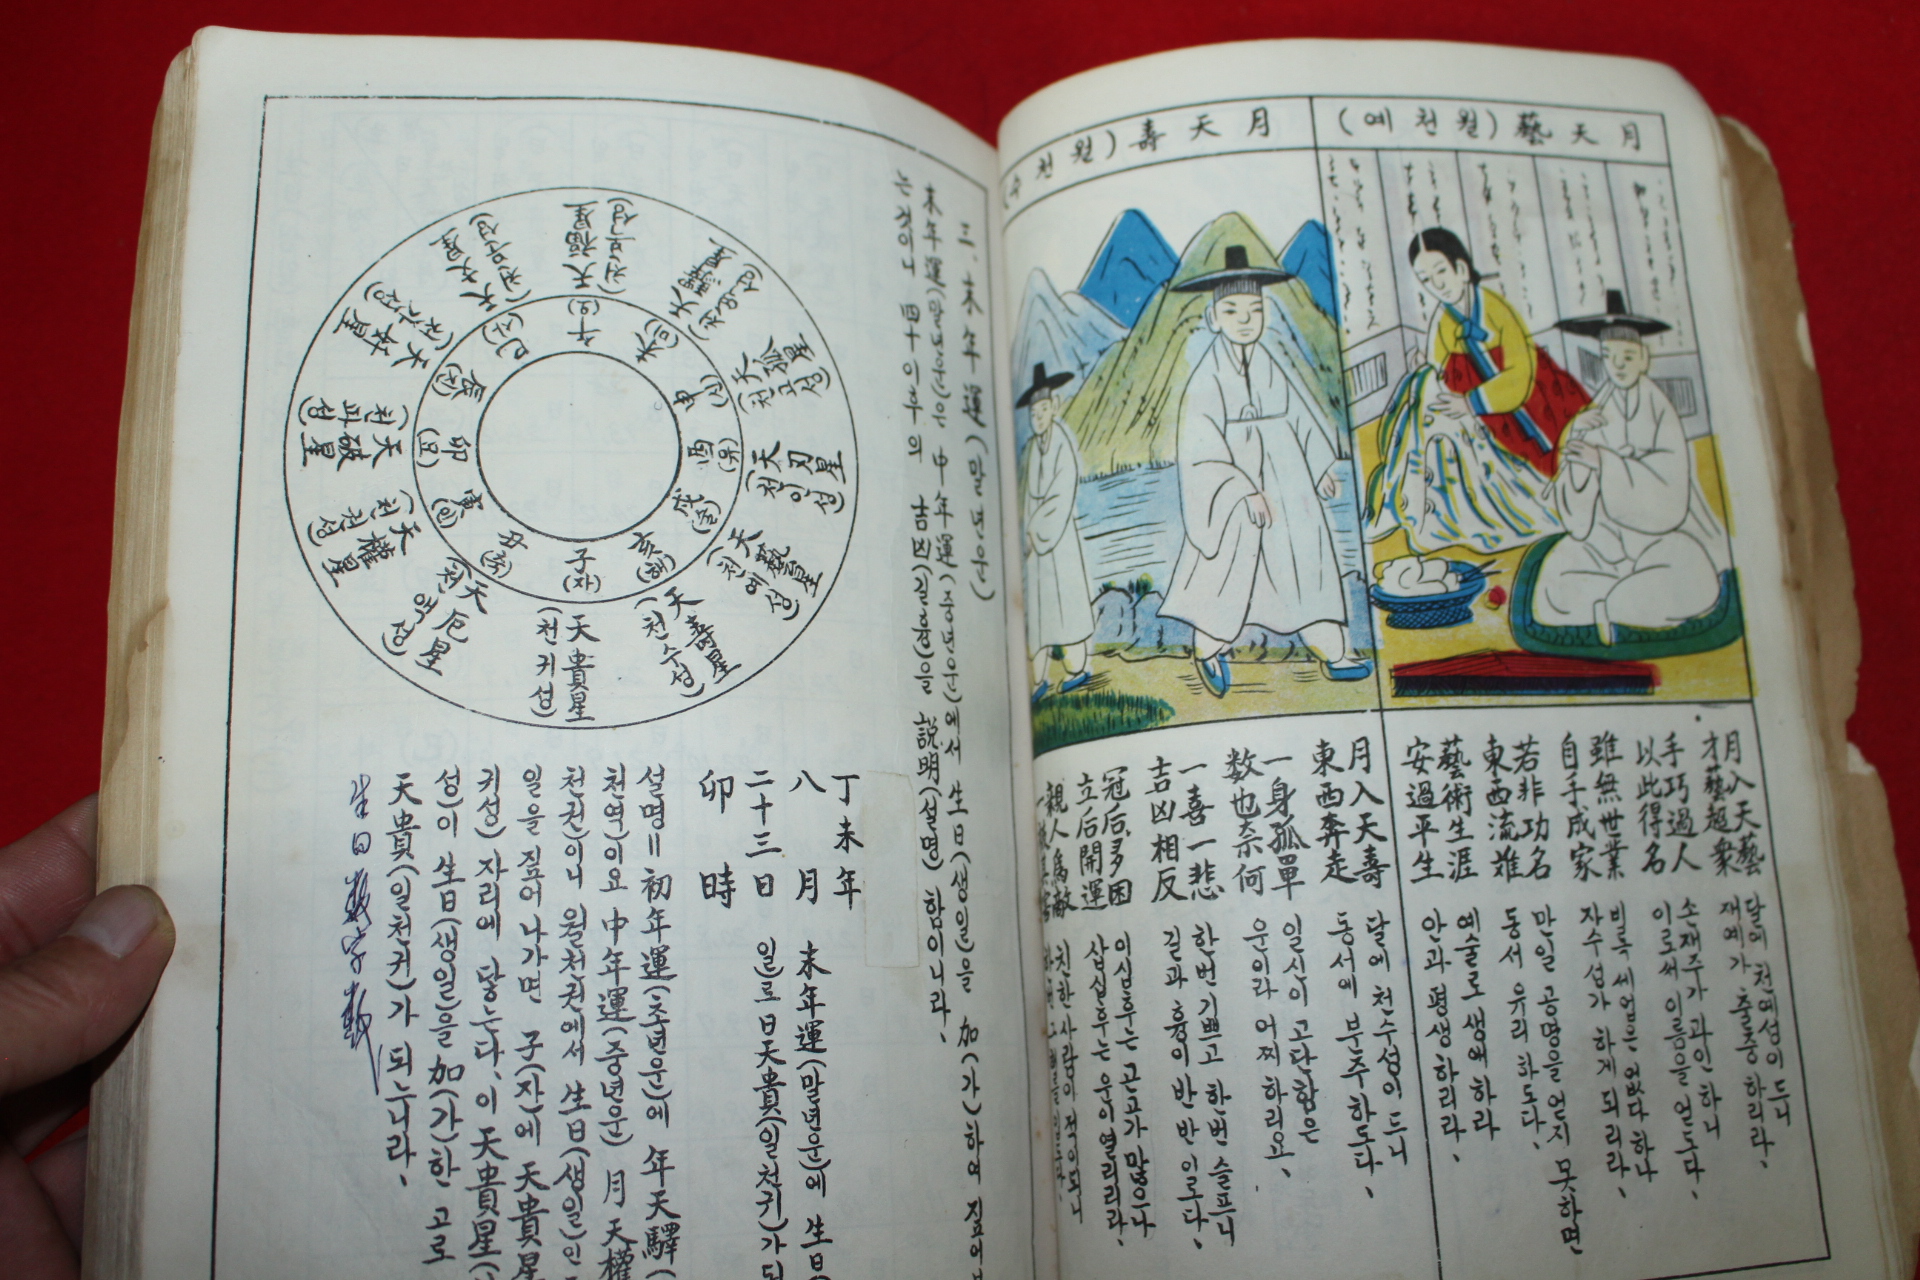 月天藝(예천월)
月天壽(수천월)
月入天藝
才藝超衆
手巧過人
以此得名
雖無世業
自手成家
若非功名
東西流難
藝術生涯
安過平生
달에 천예성이 드니
재예가 출중하리라.
손재주가 과인하니
이로써 이름을 얻도다.
비록 세업은 없다 하나
자수성가 하게 되리라.
만일 공명을 얻지 못하면
동서 유리하도다.
예술로 생애하라
안과평생하리라.
月入天壽
東西奔走
一身孤單
数也奈何
一喜一悲
吉凶相反
冠后多困
立后開運
親人為敵
달에 천수성이 드니
동서에 분주하도다.
일신이 고단함은
운이라 어찌하리오.
한번 기쁘고 한번 슬프니
길과 흉이 반반이로다.
이십후는 곤고가 많으나
삼십후는 운이 열리리라.
친한 사람이 적이 되니
三. 末年運(말년운)
末年運(말년운)은 中年運(중년운)에서 生日(생일)을 加(가)하여 짚어
는 것이니 四十 이후의 吉凶(길흉)을 說明(설명)함이니라.
天福星(천복성)
天驛星(천역성)
天孤星(천고성)
天刃星(천인성)
天藝星(천예성)
天壽星(천수성)
天貴星(천귀성)
天厄星(천액성)
天權星(천권성)
天破星(천파성)
天奸星(천간성)
天文星(천문성)
午(오)
未(미)
申(신)
酉(유)
戌(술)
亥(해)
子(자)
丑(축)
寅(인)
卯(묘)
辰(진)
巳(사)
丁未年
八月 末年運(말년운)에 生日
二十三日 일로日天貴(일천귀)가 되
卯時
설명=初年運(초년운)에 年天驛(
천역)이요 中年運(중년운) 月天權
천권)이니 월천권에서 生日(생일)인
일을 짚어 나가면 子(자)에 天貴星
귀성) 자리에 닿는다. 이 天貴星(
성)이 生日(생일)을 加(가)한 고로
天貴(일천귀)가 되느니라.
生日